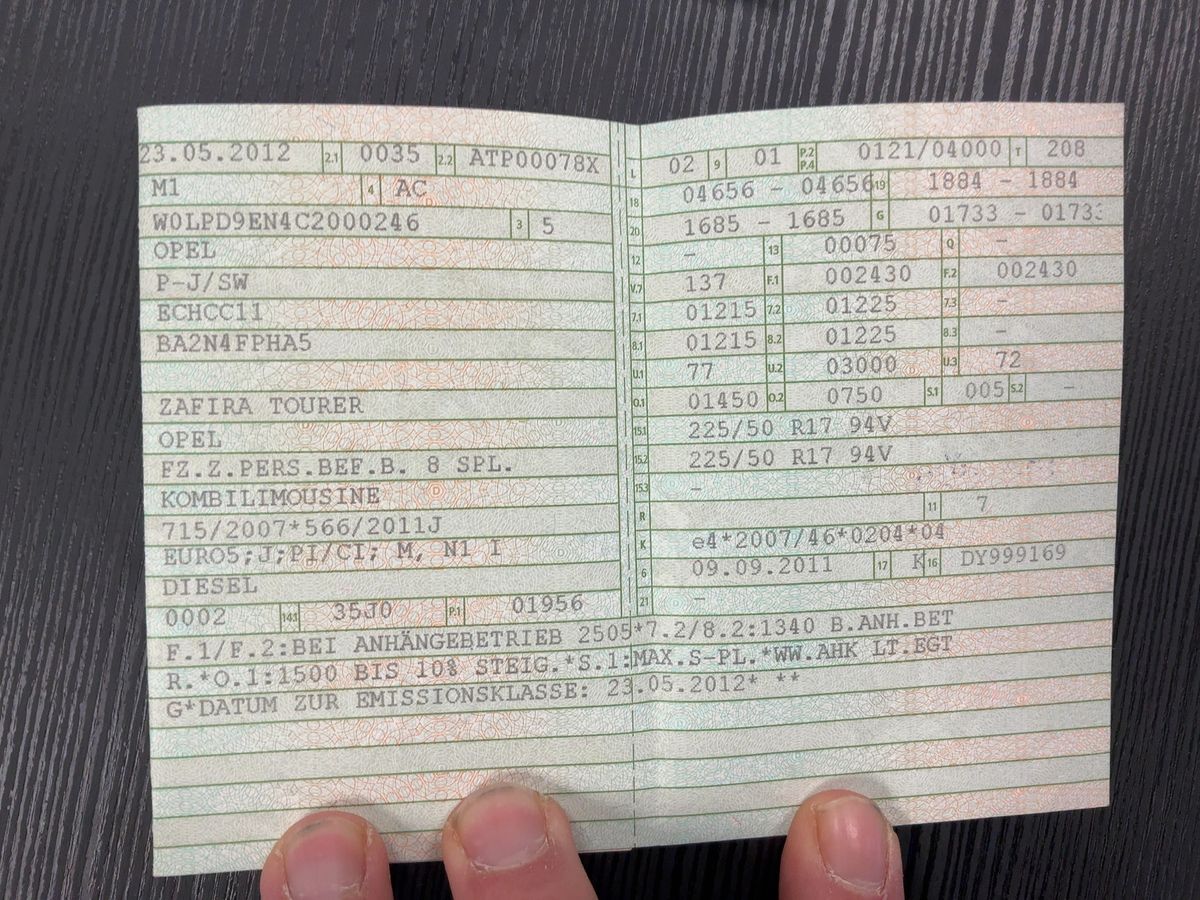 23.05.2012 2.1 0035 2.2 ATP00078X
M1 4 AC
W0LPD9EN4C2000246 3 5
OPEL
P-J/SW
ECHCC11
BA2N4FPHA5
ZAFIRA TOURER
OPEL
FZ.Z.PERS.BEF.B. 8 SPL.
KOMBILIMOUSINE
715/2007*566/2011J
EURO5;J;PI/CI; M, N1 I
DIESEL
0002 14.1 35J0 P.1 01956
L 02 9 01 P.2 P.4 0121/04000 T 208
18 04656 - 04656 19 1884 - 1884
20 1685 - 1685 G 01733 - 01733
12 - 13 00075 Q -
V.7 137 F.1 002430 F.2 002430
7.1 01215 7.2 01225 7.3 -
8.1 01215 8.2 01225 8.3 -
U.1 77 U.2 03000 U.3 72
O.1 01450 O.2 0750 S.1 005 S.2 -
15.1 225/50 R17 94V
15.2 225/50 R17 94V
15.3 -
R 11 7
K e4*2007/46*0204*04
6 09.09.2011 17 K 16 DY999169
21 -
F.1/F.2:BEI ANHÄNGEBETRIEB 2505*7.2/8.2:1340 B.ANH.BET
R.*O.1:1500 BIS 10% STEIG.*S.1:MAX.S-PL.*WW.AHK LT.EGT
G*DATUM ZUR EMISSIONSKLASSE: 23.05.2012* **